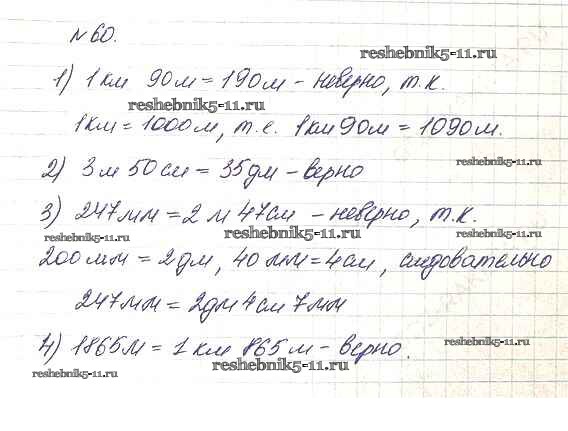 №60.
reshebnik5-11.ru
1) 1 км 90м = 190м - неверно, т.к.
reshebnik5-11.ru
1км = 1000м, т.е. 1км 90м = 1090м.
reshebnik5-11.ru
2) 3м 50см = 35дм - верно
3) 247мм = 2м 47см - неверно, т.к.
reshebnik5-11.ru reshebnik5-11.ru reshebnik5-11.ru
200мм = 2дм, 40мм = 4см, следовательно
247мм = 2дм 4см 7мм
reshebnik5-11.ru
4) 1865м = 1 км 865м - верно.
reshebnik5-11.ru reshebnik5-11.ru